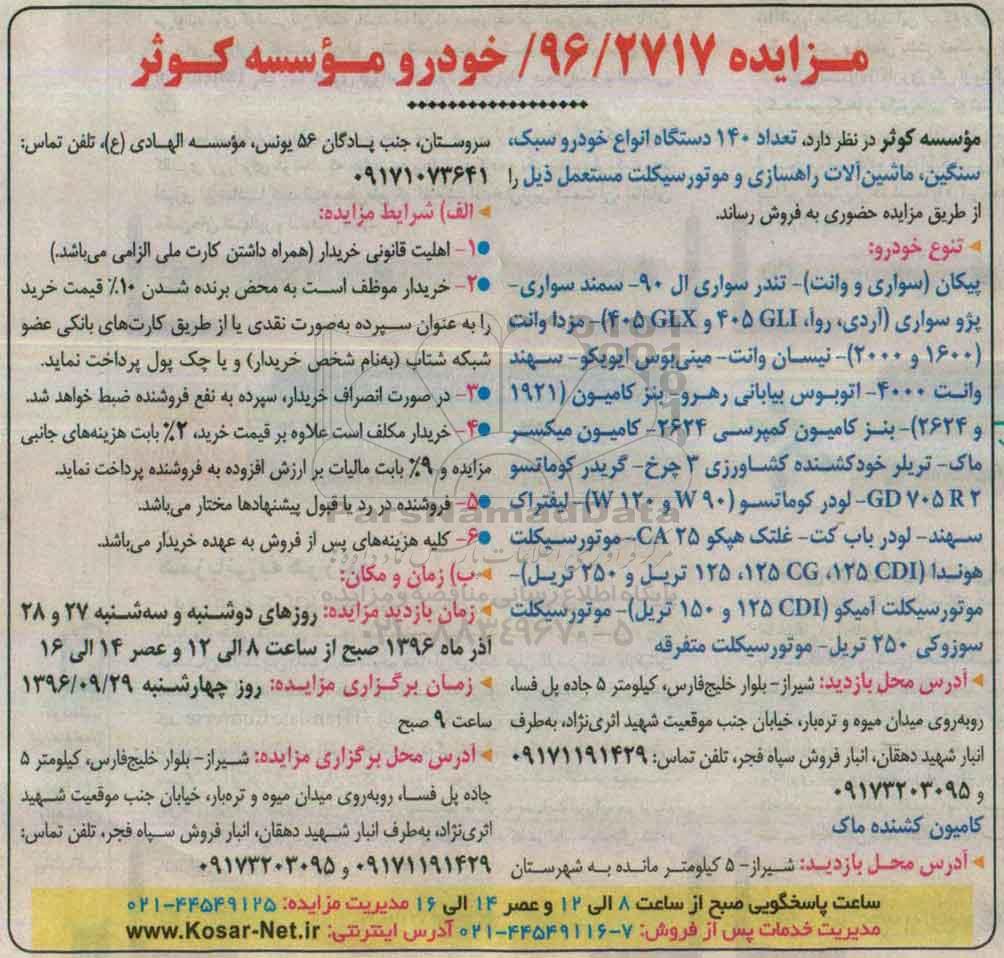 مـزایده ۹۶/۲۷۱۷/ خودرو مـؤسسه کـوثر
مؤسسه کوثر در نظر دارد، تعداد ۱۴۰ دستگاه انواع خودرو سبک،
سنگین، ماشین‌آلات راهسازی و موتورسیکلت مستعمل ذیل را
از طریق مزایده حضوری به فروش رساند.
تنوع خودرو:
پیکان (سواری و وانت)- تندر سواری ال ۹۰- سمند سواری-
پژو سواری (آردی، روآ، ۴۰۵ GLI و ۴۰۵ GLX)- مزدا وانت
(۱۶۰۰ و ۲۰۰۰)- نیسان وانت- مینی‌بوس ایویکو- سهند
وانت ۴۰۰۰- اتوبوس بیابانی رهرو- بنز کامیون (۱۹۲۱
و ۲۶۲۴)- بنـز کامیون کمپرسی ۲۶۲۴- کامیون میکسر
ماک- تریلر خودکشنده کشاورزی ۳ چرخ- گریدر کوماتسو
GD ۷۰۵ R ۲- لودر کوماتسـو (W ۹۰ و W ۱۲۰)- لیفتراک
سـهند- لودر باب کت- غلتک هپکو CA ۲۵- موتورسـیکلت
هوندا (۱۲۵ CDI، ۱۲۵ CG، ۱۲۵ تریـل و ۲۵۰ تریـل)-
موتورسیکلت آمیکو (۱۲۵ CDI و ۱۵۰ تریل)- موتورسیکلت
سوزوکی ۲۵۰ تریل- موتورسیکلت متفرقه
آدرس محل بازدید: شیراز- بلوار خلیج‌فارس، کیلومتر ۵ جاده پل فسا،
روبه‌روی میدان میوه و تره‌بار، خیابان جنب موقعیت شهید اثری‌نژاد، به‌طرف
انبار شهید دهقان، انبار فروش سپاه فجر، تلفن تماس: ۰۹۱۷۱۱۹۱۴۲۹
و ۰۹۱۷۳۲۰۳۰۹۵
کامیون کشنده ماک
آدرس محـل بازدیـد: شـیراز- ۵ کیلومتـر مانده بـه شهرسـتان
سروستان، جنب پـادگان ۵۶ یونس، مؤسسـه الهـادی (ع)، تلفن تماس:
۰۹۱۷۱۰۷۳۶۴۱
الف) شرایط مزایده:
۱- اهلیت قانونی خریدار (همراه داشتن کارت ملی الزامی می‌باشد.)
۲- خریـدار موظف اسـت به محض برنده شـدن ۱۰٪ قیمت خرید
را به عنوان سـپرده به‌صورت نقدی یا از طریق کارت‌های بانکی عضو
شبکه شتاب (به‌نام شخص خریدار) و یا چک پول پرداخت نماید.
۳- در صورت انصراف خریدار، سپرده به نفع فروشنده ضبط خواهد شد.
۴- خریدار مکلف است علاوه بر قیمت خرید، ۲٪ بابت هزینه‌های جانبی
مزایده و ۹٪ بابت مالیات بر ارزش افزوده به فروشنده پرداخت نماید.
۵- فروشنده در رد یا قبول پیشنهادها مختار می‌باشد.
۶- کلیه هزینه‌های پس از فروش به عهده خریدار می‌باشد.
ب) زمان و مکان:
زمان بازدید مزایده: روزهای دوشنبه و سه‌شنبه ۲۷ و ۲۸
آذر ماه ۱۳۹۶ صبح از ساعت ۸ الی ۱۲ و عصر ۱۴ الی ۱۶
زمان برگـزاری مزایـده: روز چهارشـنبه ۱۳۹۶/۰۹/۲۹
ساعت ۹ صبح
آدرس محل برگزاری مزایده: شـیراز- بلوار خلیج‌فارس، کیلومتر ۵
جاده پل فسـا، روبه‌روی میدان میوه و تره‌بار، خیابان جنب موقعیت شـهید
اثری‌نژاد، به‌طرف انبار شـهید دهقان، انبار فروش سـپاه فجر، تلفن تماس:
۰۹۱۷۱۱۹۱۴۲۹ و ۰۹۱۷۳۲۰۳۰۹۵
ساعت پاسخگویی صبح از ساعت ۸ الی ۱۲ و عصر ۱۴ الی ۱۶ مدیریت مزایده: ۰۲۱-۴۴۵۴۹۱۲۵
مدیریت خدمات پس از فروش: ۰۲۱-۴۴۵۴۹۱۱۶-۷ آدرس اینترنتی: www.Kosar-Net.ir
ParsNamadData
پایگاه اطلاع رسانی مناقصه و مزایده
۰۲۱-۸۸۳۴۹۶۷۰-۵